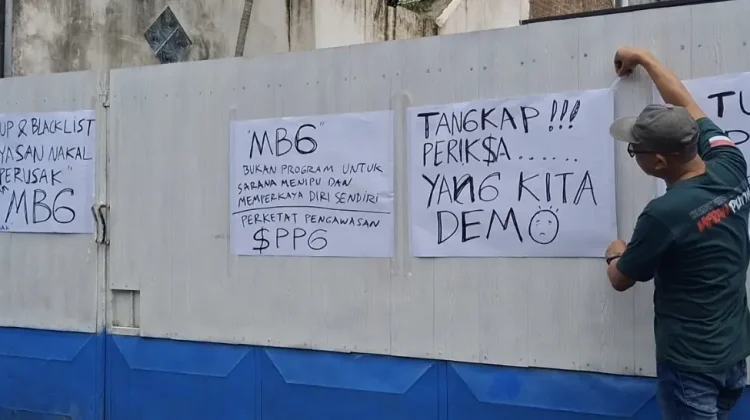 UP & BLACKLIST
YASAN NAKAL
PERUSAK"
MBG
"MBG"
BUKAN PROGRAM UNTUK
SARANA MENIPU DAN
MEMPERKAYA DIRI SENDIRI
PERKETAT PENGAWASAN
$PPG
TANGKAP!!!
PERIK$A......
YANG KITA
DEMO
TU
MERAH PUTIH